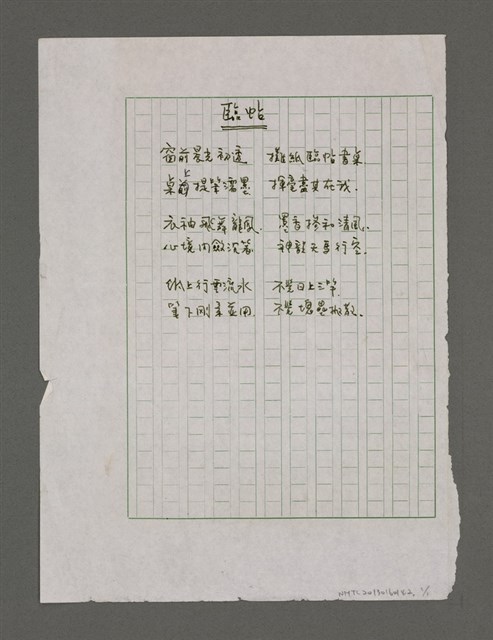 臨帖
窗前晨光初透 攤紙臨帖書桌
桌上提筆濡墨 揮毫盡其在我.
衣袖飛舞龍風. 墨香摻和清風.
心境內斂沉著 神龍天馬行空.
紙上行雲流水 不覺日上三竿.
筆下剛柔並用. 不覺塊壘
NMTL20130160152